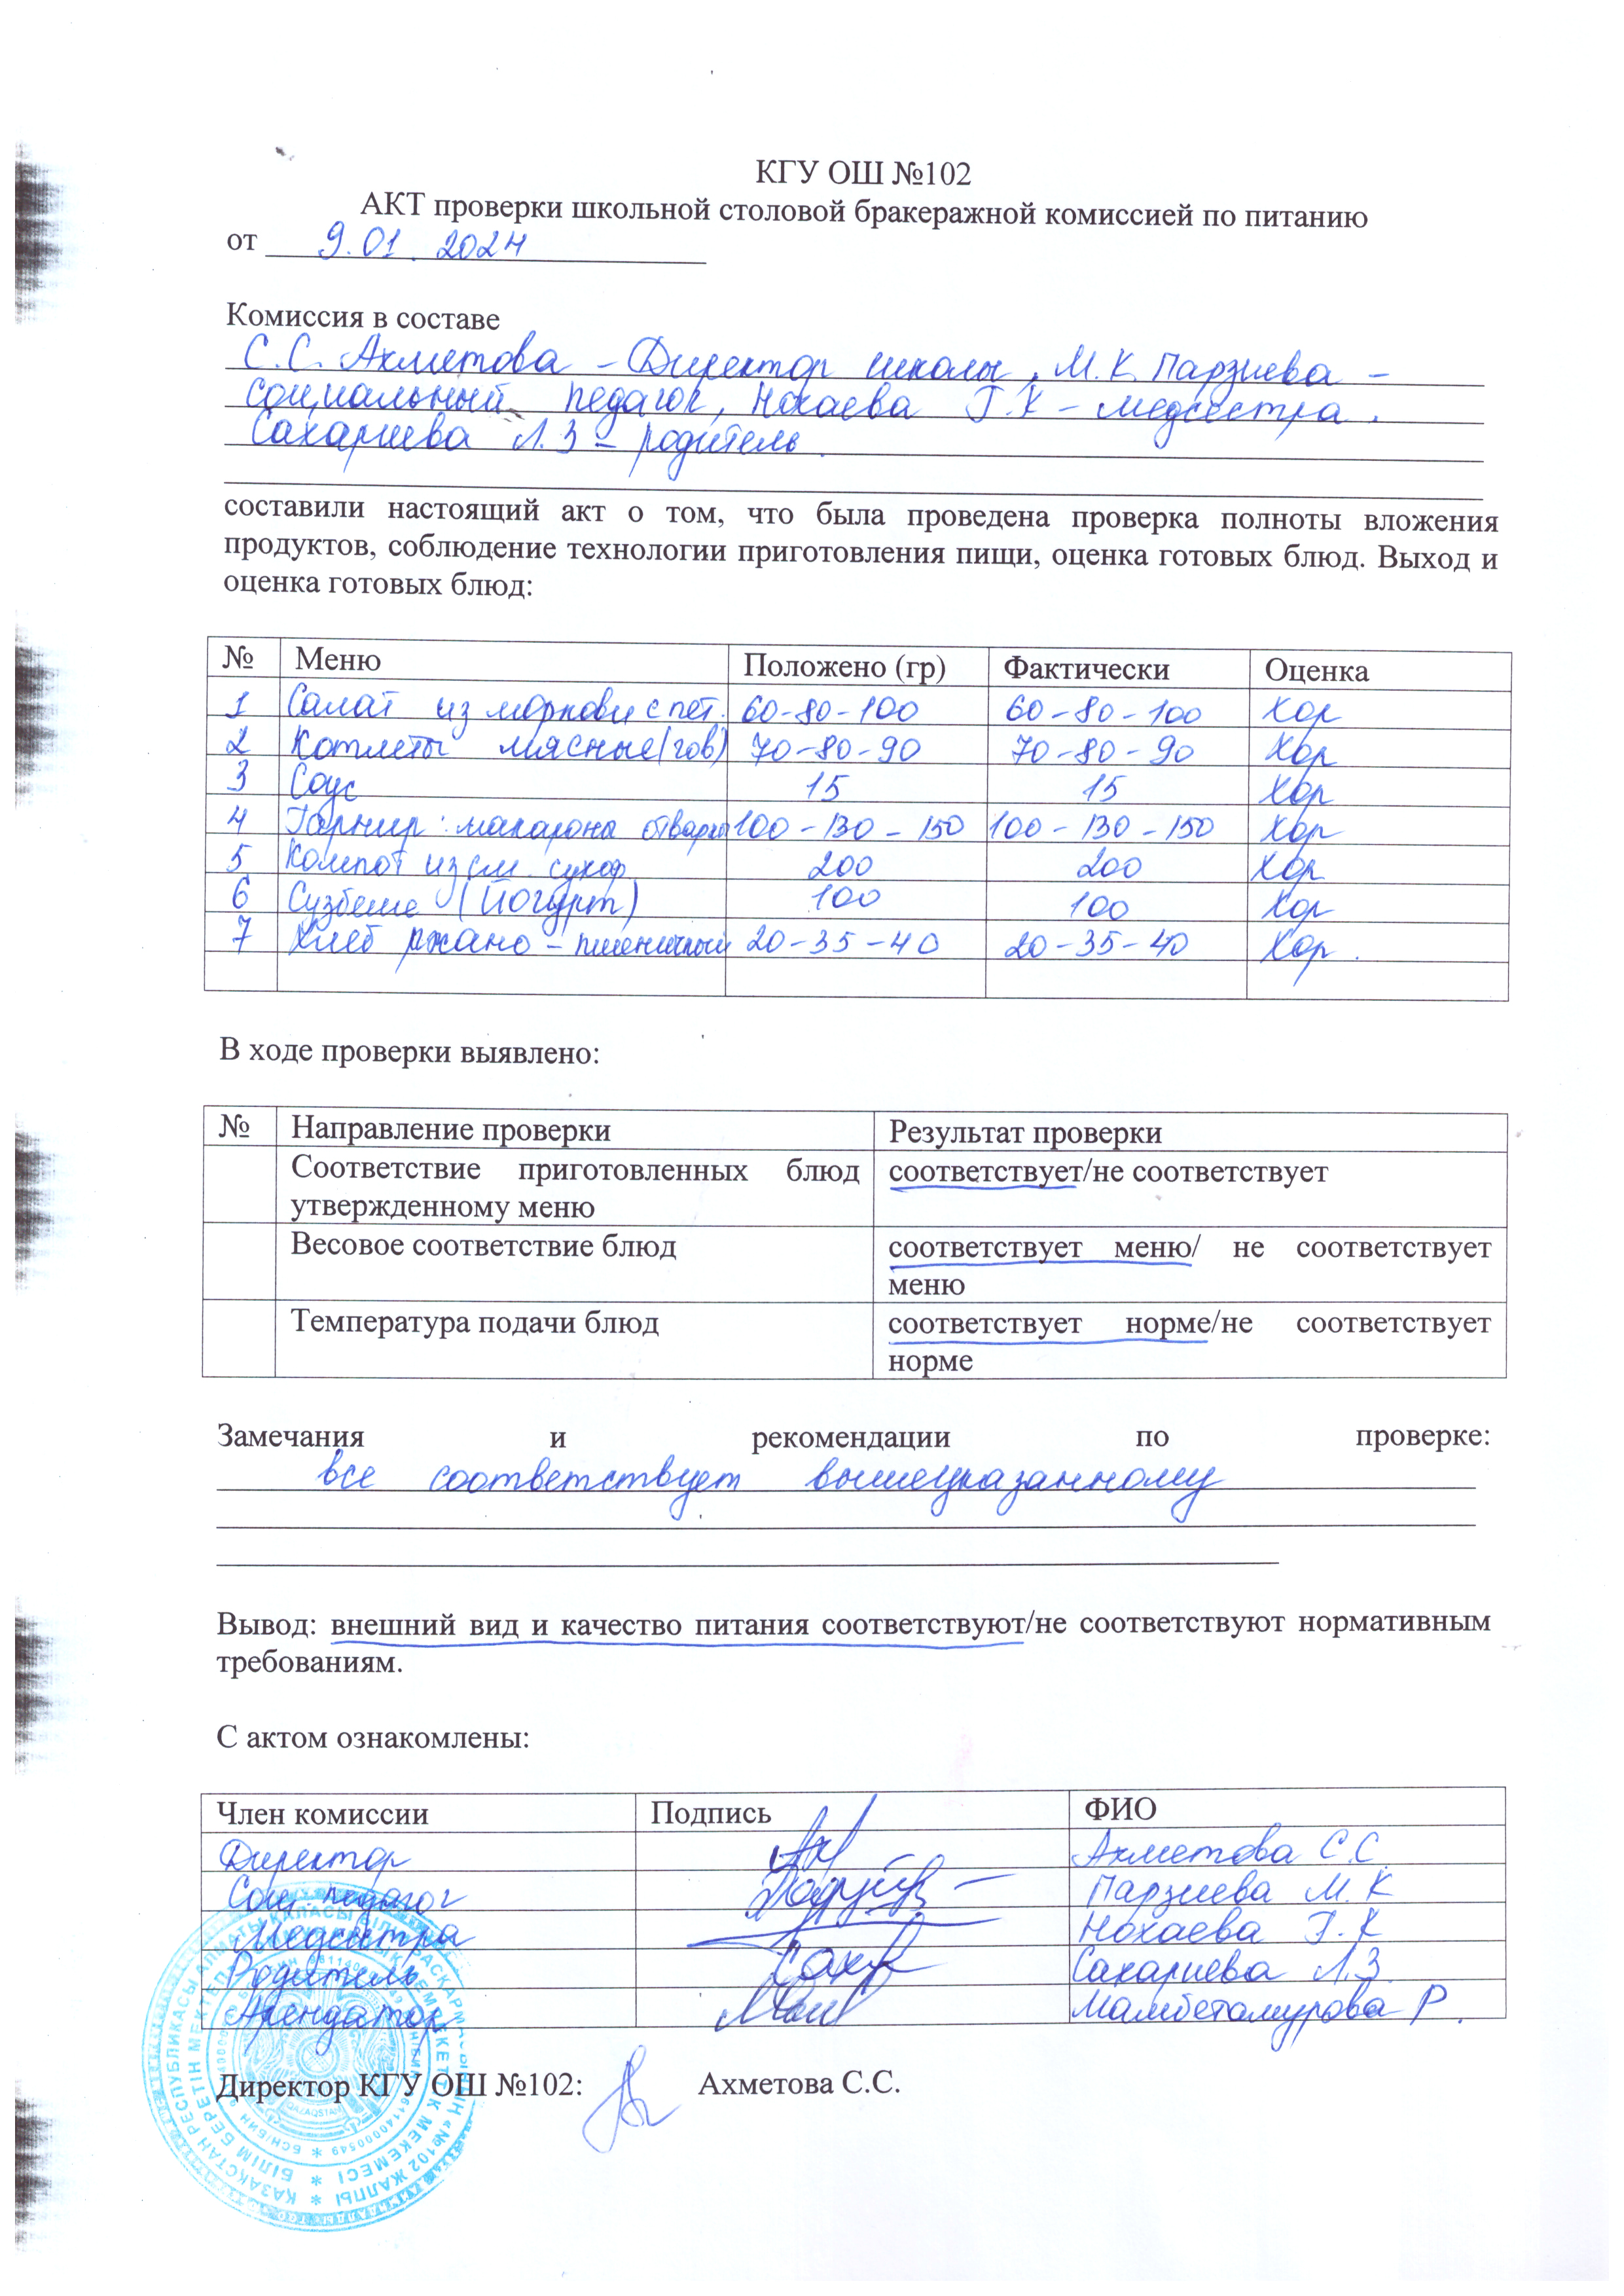 КГУ ОШ №102
АКТ проверки школьной столовой бракеражной комиссией по питанию
от 9.01.2024
Комиссия в составе
С.С. Ахметова – Директор школы, М.К. Парзиева –
социальный педагог, Нохаева Г.К – медсестра.
Сахариева Л.З – родитель.
составили настоящий акт о том, что была проведена проверка полноты вложения
продуктов, соблюдение технологии приготовления пищи, оценка готовых блюд. Выход и
оценка готовых блюд:
№ Меню Положено (гр) Фактически Оценка
1 Салат из моркови с пет. 60-80-100 60-80-100 Хор
2 Котлеты мясные (гов) 70-80-90 70-80-90 Хор
3 Соус 15 15 Хор
4 Гарнир: макароны отварны 100-130-150 100-130-150 Хор
5 Компот из см. сухоф 200 200 Хор
6 Сузбеше (Йогурт) 100 100 Хор
7 Хлеб ржано – пшеничный 20-35-40 20-35-40 Хор.
В ходе проверки выявлено:
№ Направление проверки Результат проверки
Соответствие приготовленных блюд соответствует/не соответствует
утвержденному меню
Весовое соответствие блюд соответствует меню/ не соответствует
меню
Температура подачи блюд соответствует норме/не соответствует
норме
Замечания и рекомендации по проверке:
все соответствует вышеуказанному
Вывод: внешний вид и качество питания соответствуют/не соответствуют нормативным
требованиям.
С актом ознакомлены:
Член комиссии Подпись ФИО
Директор Ахметова С.С.
Соц. педагог Парзиева М.К
Медсестра Нохаева Г.К
Родитель Сахариева Л.З.
Арендатор Мамбетомурова Р.
Директор КГУ ОШ №102: Ахметова С.С.